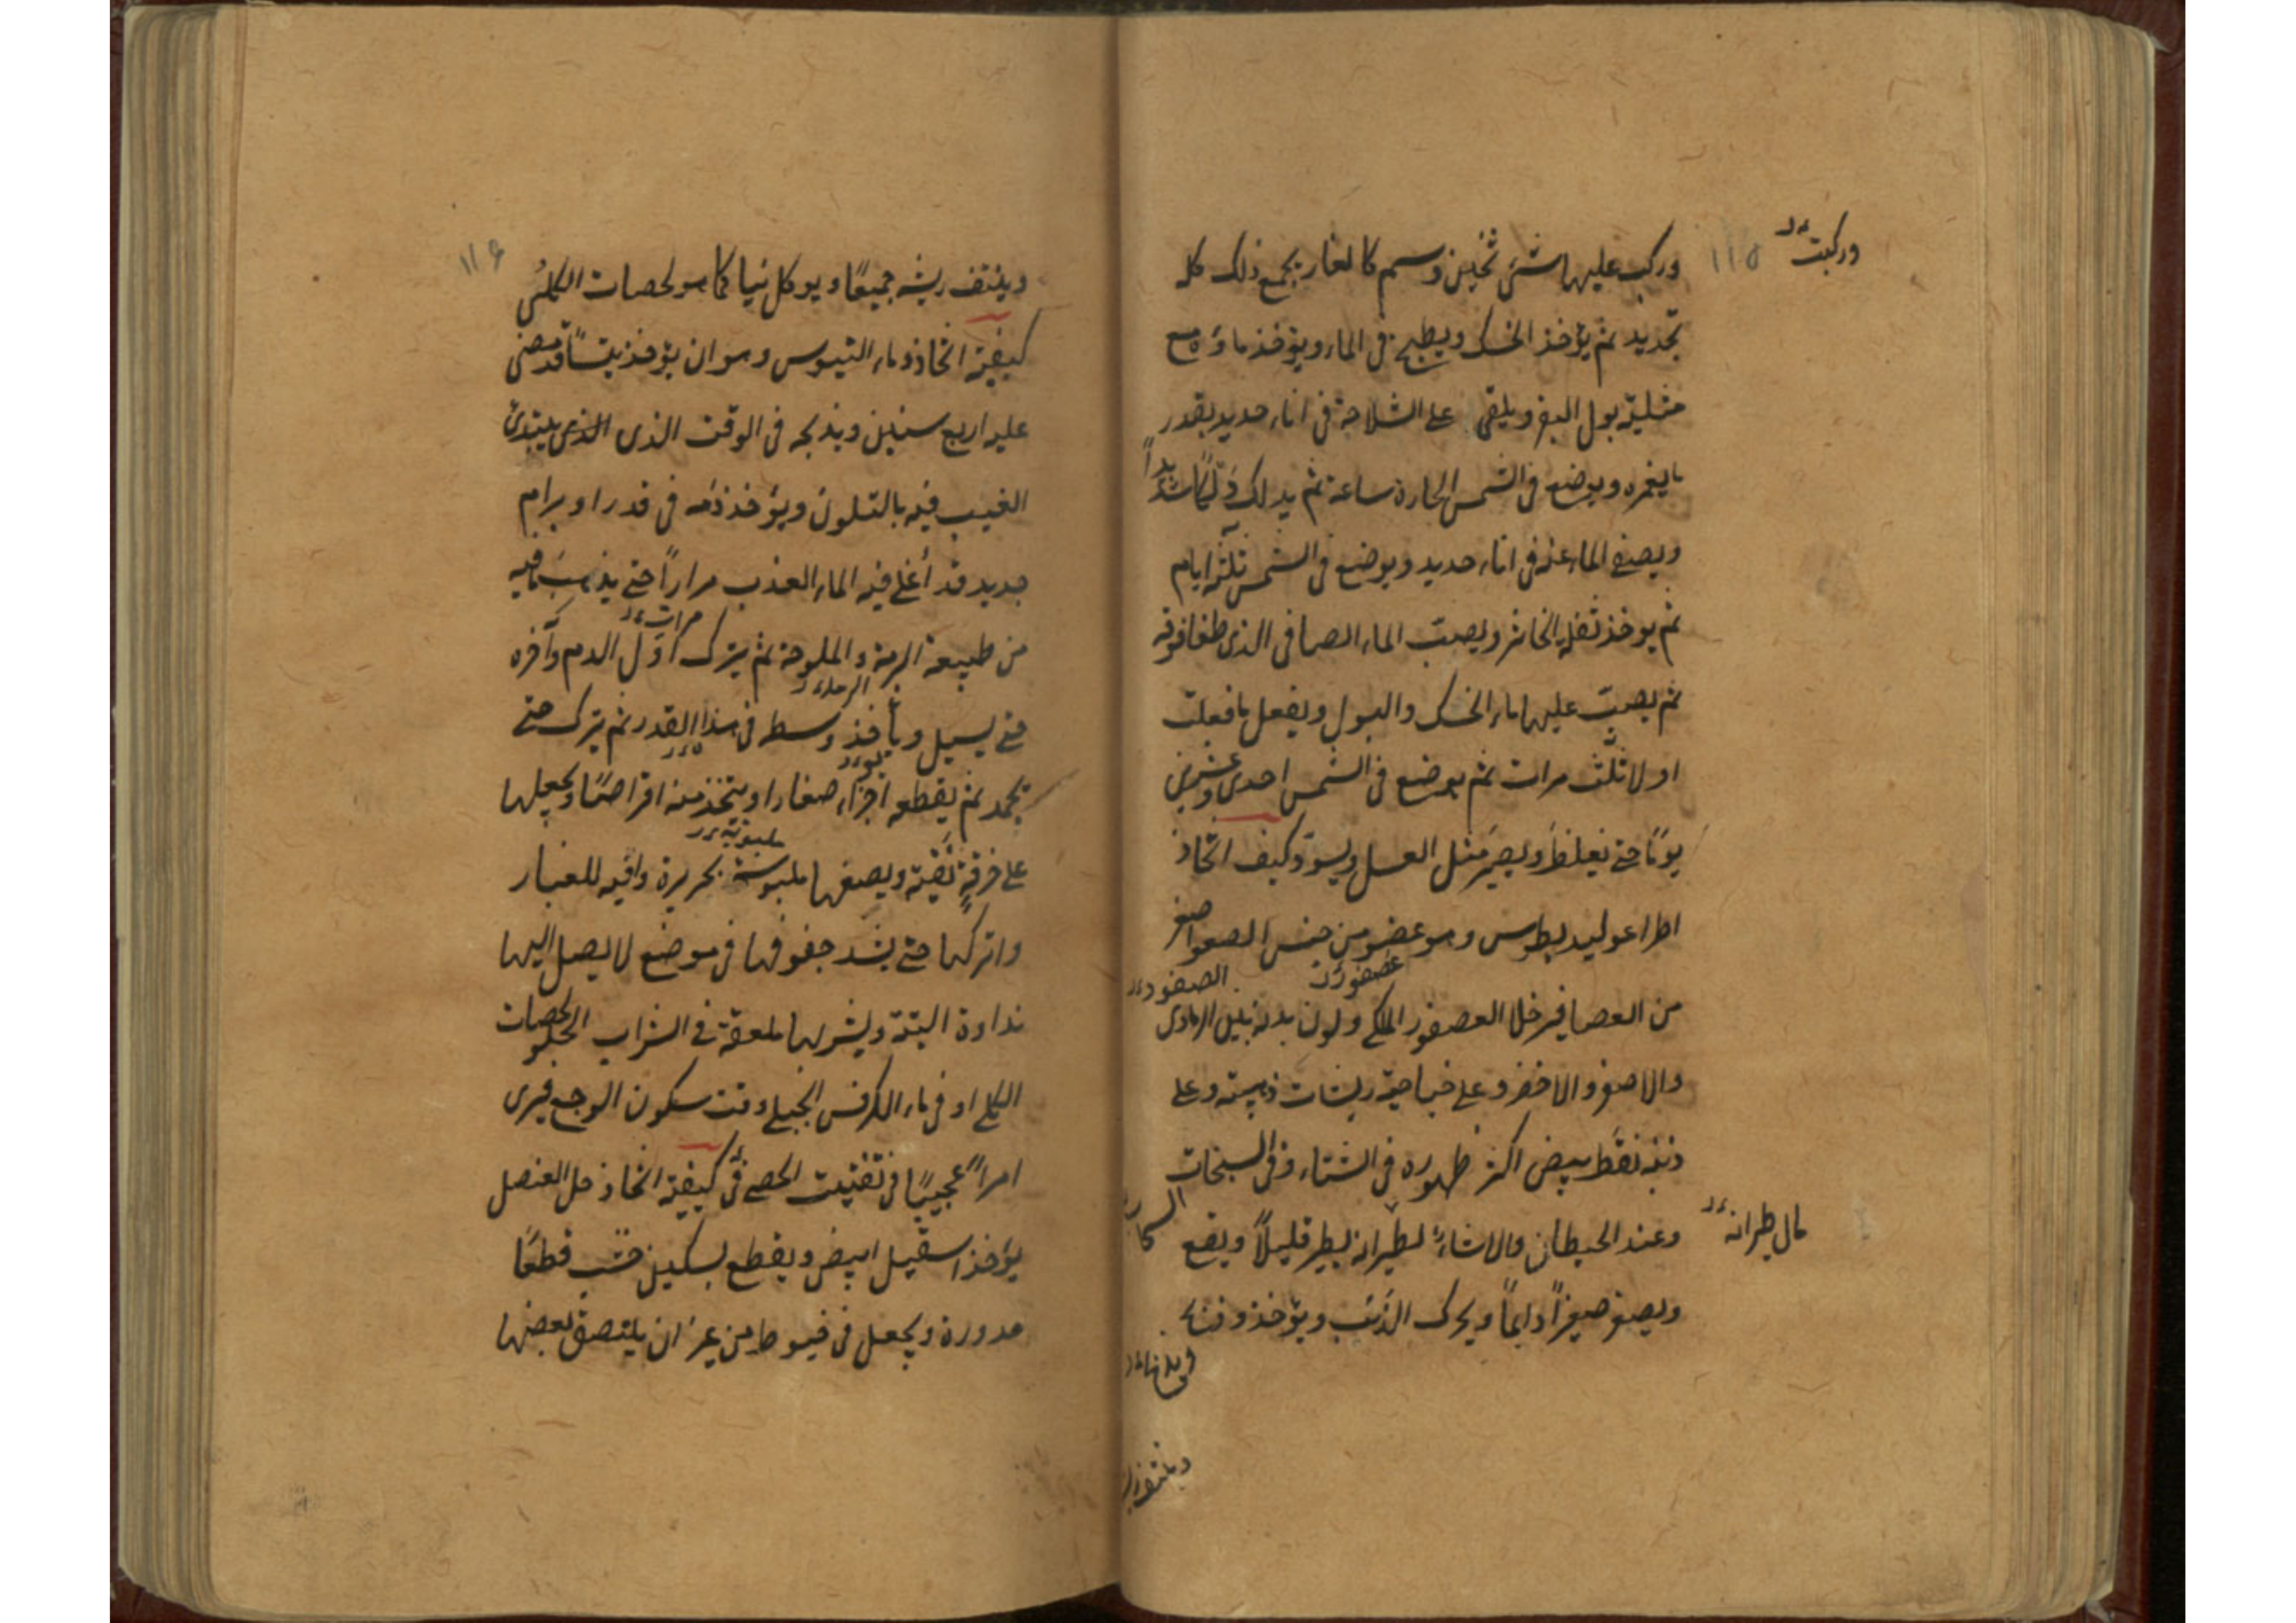 وركب عليها شئ ثخين وسم كالغار يجمع ذلك كله
وركبت
تجديد ثم يؤخذ الخسك ويطبخ في الماء ويؤخذ ماؤه مع
مثليه بول البقر ويلقى على الشلاجة في اناء حديد بقدر
ما يغمره ويوضع في الشمس الحارة ساعة ثم يدلك دلكًا شديدًا
ويصفى الماء عنه في اناء حديد ويوضع في الشمس ثلثة ايام
ثم يوخذ ثفله الخاثر ويصبّ الماء الصافى الذى طفا فوقه
ثم يصبّ عليها ماء الخسك والبول ويفعل ما فعلت
اولا ثلث مرات ثم يوضع في الشمس احدى وعشرين
يومًا حتى يغلظ ويصير مثل العسل ويسوّد كيف اتخاذ
اطراغوليديطوس وهو عصفور من جنس الصعو اصغر
عصفور
من العصافير خلا العصفور الملكي ولون بدنه بين الرمادى
والاصفر والاخضر وعلى جناحيه ريشات ذهبية وعلى
ذنبه نقط بيض اكثر ظهوره في الشتاء وفى السبخات
وعند الحيطان والانشاء لطيرانه يطير قليلاً ويقع
طيرانه
ويصفر صفيرًا دايمًا ويحرك الذنب ويؤخذ
وينتف ريشه جميعًا ويوكل نيا كما هو لحصات الكلى
كيفية اتخاذ دماء التيوس وهو ان يؤخذ تيسًا قد مضى
عليه اربع سنين ويذبحه في الوقت الذى الذى يبتدئ
العنب فيه بالتلون ويؤخذ دمه في قدر او برام
جديد قد أغلي فيه الماء العذب مرارًا حتى يذهب ما فيه
مرات
من طبيعة البرمة والملوحة ثم يترك اوّل الدم وآخره
حتى يسيل ويأخذ وسطه في هذا القدر ثم يترك حتى
يجمد ثم يقطعه اجزاء صغارا ويتخذ منه اقراصًا ويجعلها
على خرقة نقية ويضعها ملبوسة بحريرة واقيه للغبار
واتركها حتى يشد جفوفها في موضع لا يصل اليها
نداوة البتة ويشربها ملعقة في الشراب الحلو لحصات
الكلى او في ماء الكرفس الجبلى وقت سكون الوجع فيرى
امراً عجيبًا في تفتيت الحصى في كيفية اتخاذ خل العنصل
يؤخذ اسقيل ابيض ويقطع بسكين خشب قطعًا
مدورة ويجعل في خيوط من غير ان يلتصق بعضها